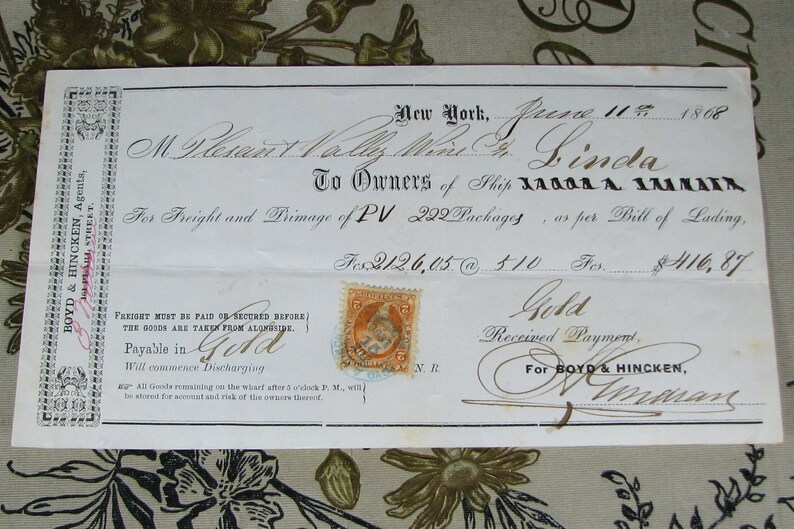 New York, June 11th 1868
M Pleasant Valley Wine Co,
Linda
To Owners of Ship
For Freight and Primage of PV 222 Packages, as per Bill of Lading,
Fcs 2126,05 @ 510 Fcs. $416,87
Gold
Received Payment,
For BOYD & HINCKEN,
BOYD & HINCKEN, Agents,
PEARL STREET.
FREIGHT MUST BE PAID OR SECURED BEFORE
THE GOODS ARE TAKEN FROM ALONGSIDE.
Payable in Gold
Will commence Discharging N. R.
☞ All Goods remaining on the wharf after 5 o'clock P. M., will
be stored for account and risk of the owners thereof.
2 2
2 2